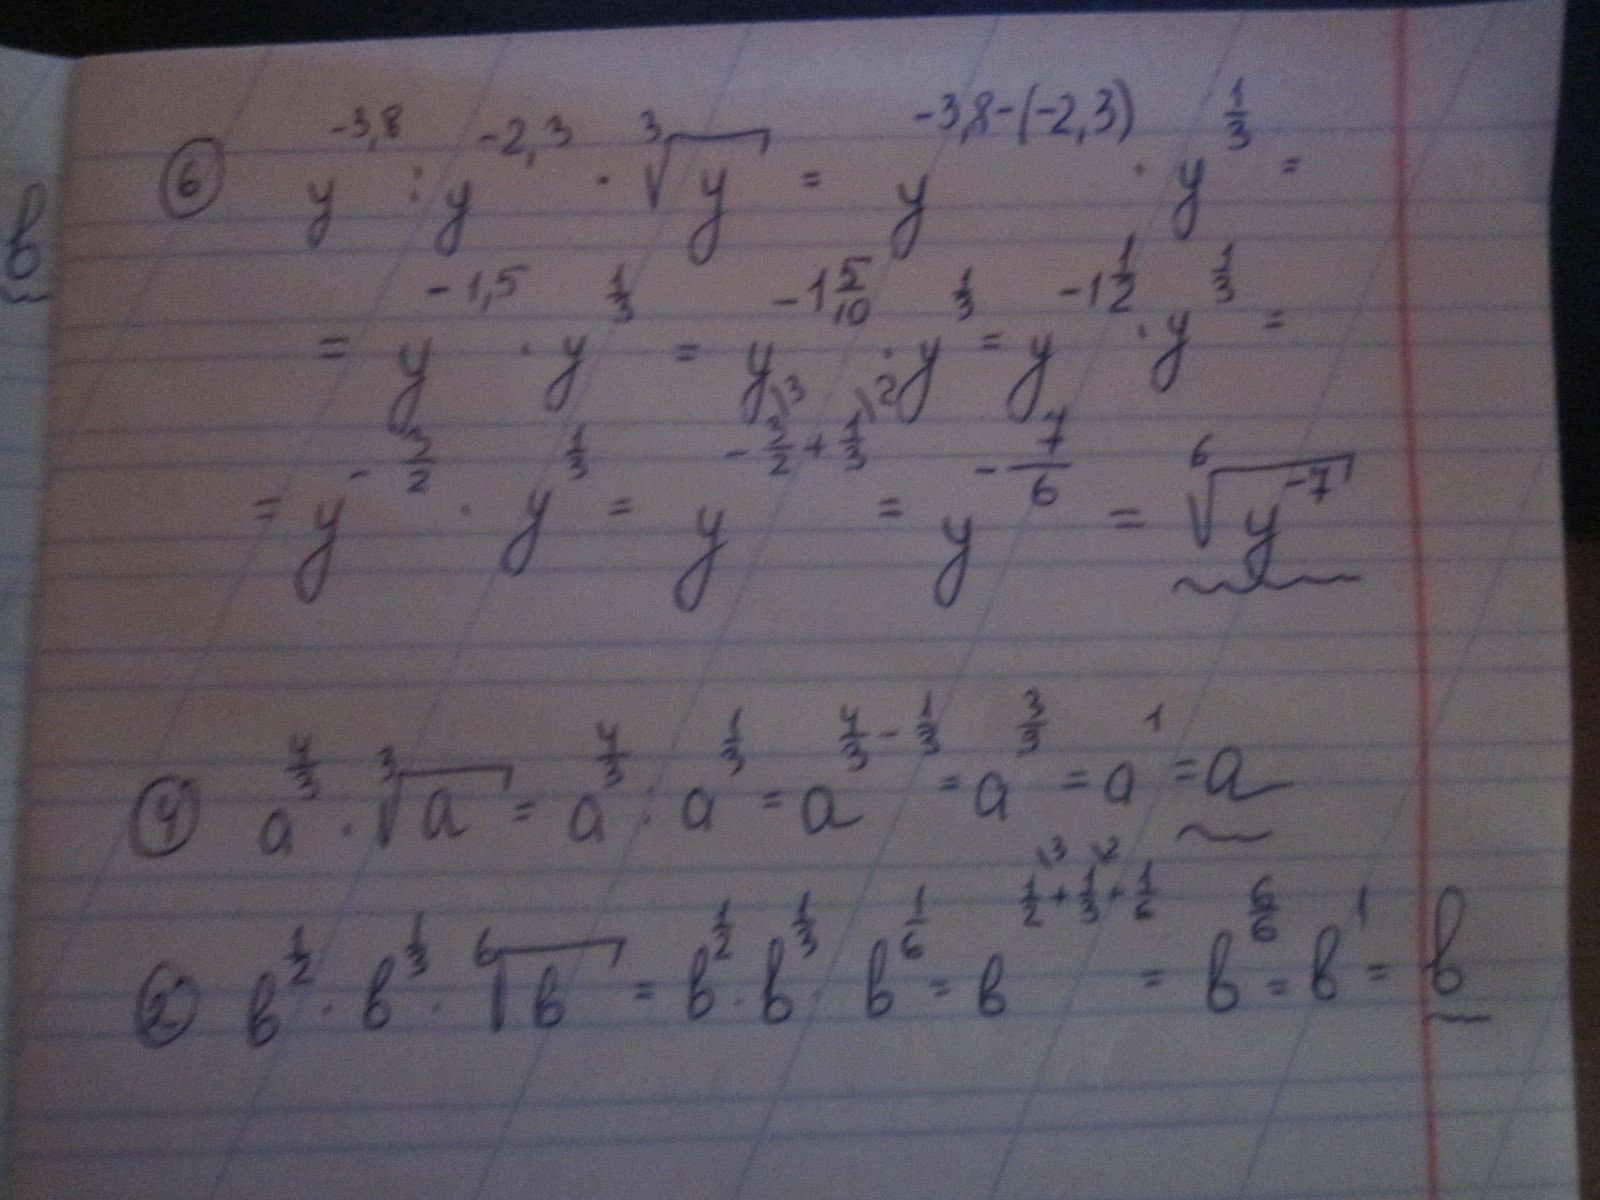 в
⑥ y^(-3,8) : y^(-2,3) · ∛y = y^(-3,8-(-2,3)) · y^(1/3) =
= y^(-1,5) · y^(1/3) = y^(-1 5/10) · y^(1/3) = y^(-1 1/2) · y^(1/3) =
= y^(-3/2) · y^(1/3) = y^(-3/2\3 + 1/3\2) = y^(-7/6) = ⁶√(y^(-7))
④ a^(4/3) · ∛a = a^(4/3) : a^(1/3) = a^(4/3 - 1/3) = a^(3/3) = a^1 = a
② в^(1/2) · в^(1/3) · ⁶√в = в^(1/2) · в^(1/3) · в^(1/6) = в^(1/2\3 + 1/3\2 + 1/6) = в^(6/6) = в^1 = в